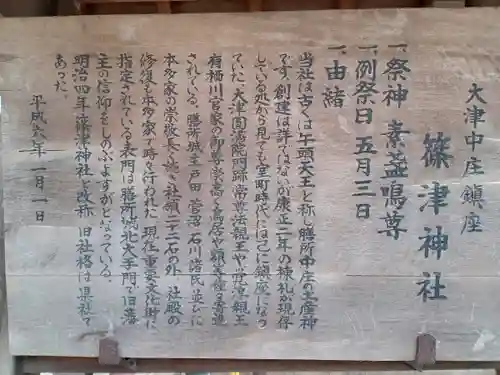 大津中庄鎮座
篠津神社
一、祭神 素盞嗚尊
一、例祭日 五月三日
一、由緒
当社は古くは牛頭天王と称し膳所中庄の土産神
です。創建は詳ではないが康正二年の棟札が現存
している処から見ても室町時代には己に鎮座になっ
ていた。大津圓満院門跡常尊法親王や
有栖川宮家の御尊崇高く鳥居や額
されている。膳所城主戸田 菅沼 石川諸氏並びに
本多家の崇敬長く続き社領二十二石の外 社殿の
修復も本多家で時々行われた 現在重要文化財に
指定されている表門は膳所城北大手門で旧藩
主の信仰をしのぶよすがとなっている。
明治四年 篠津神社と改称 旧社格は県社で
あった。
平成六年一月一日